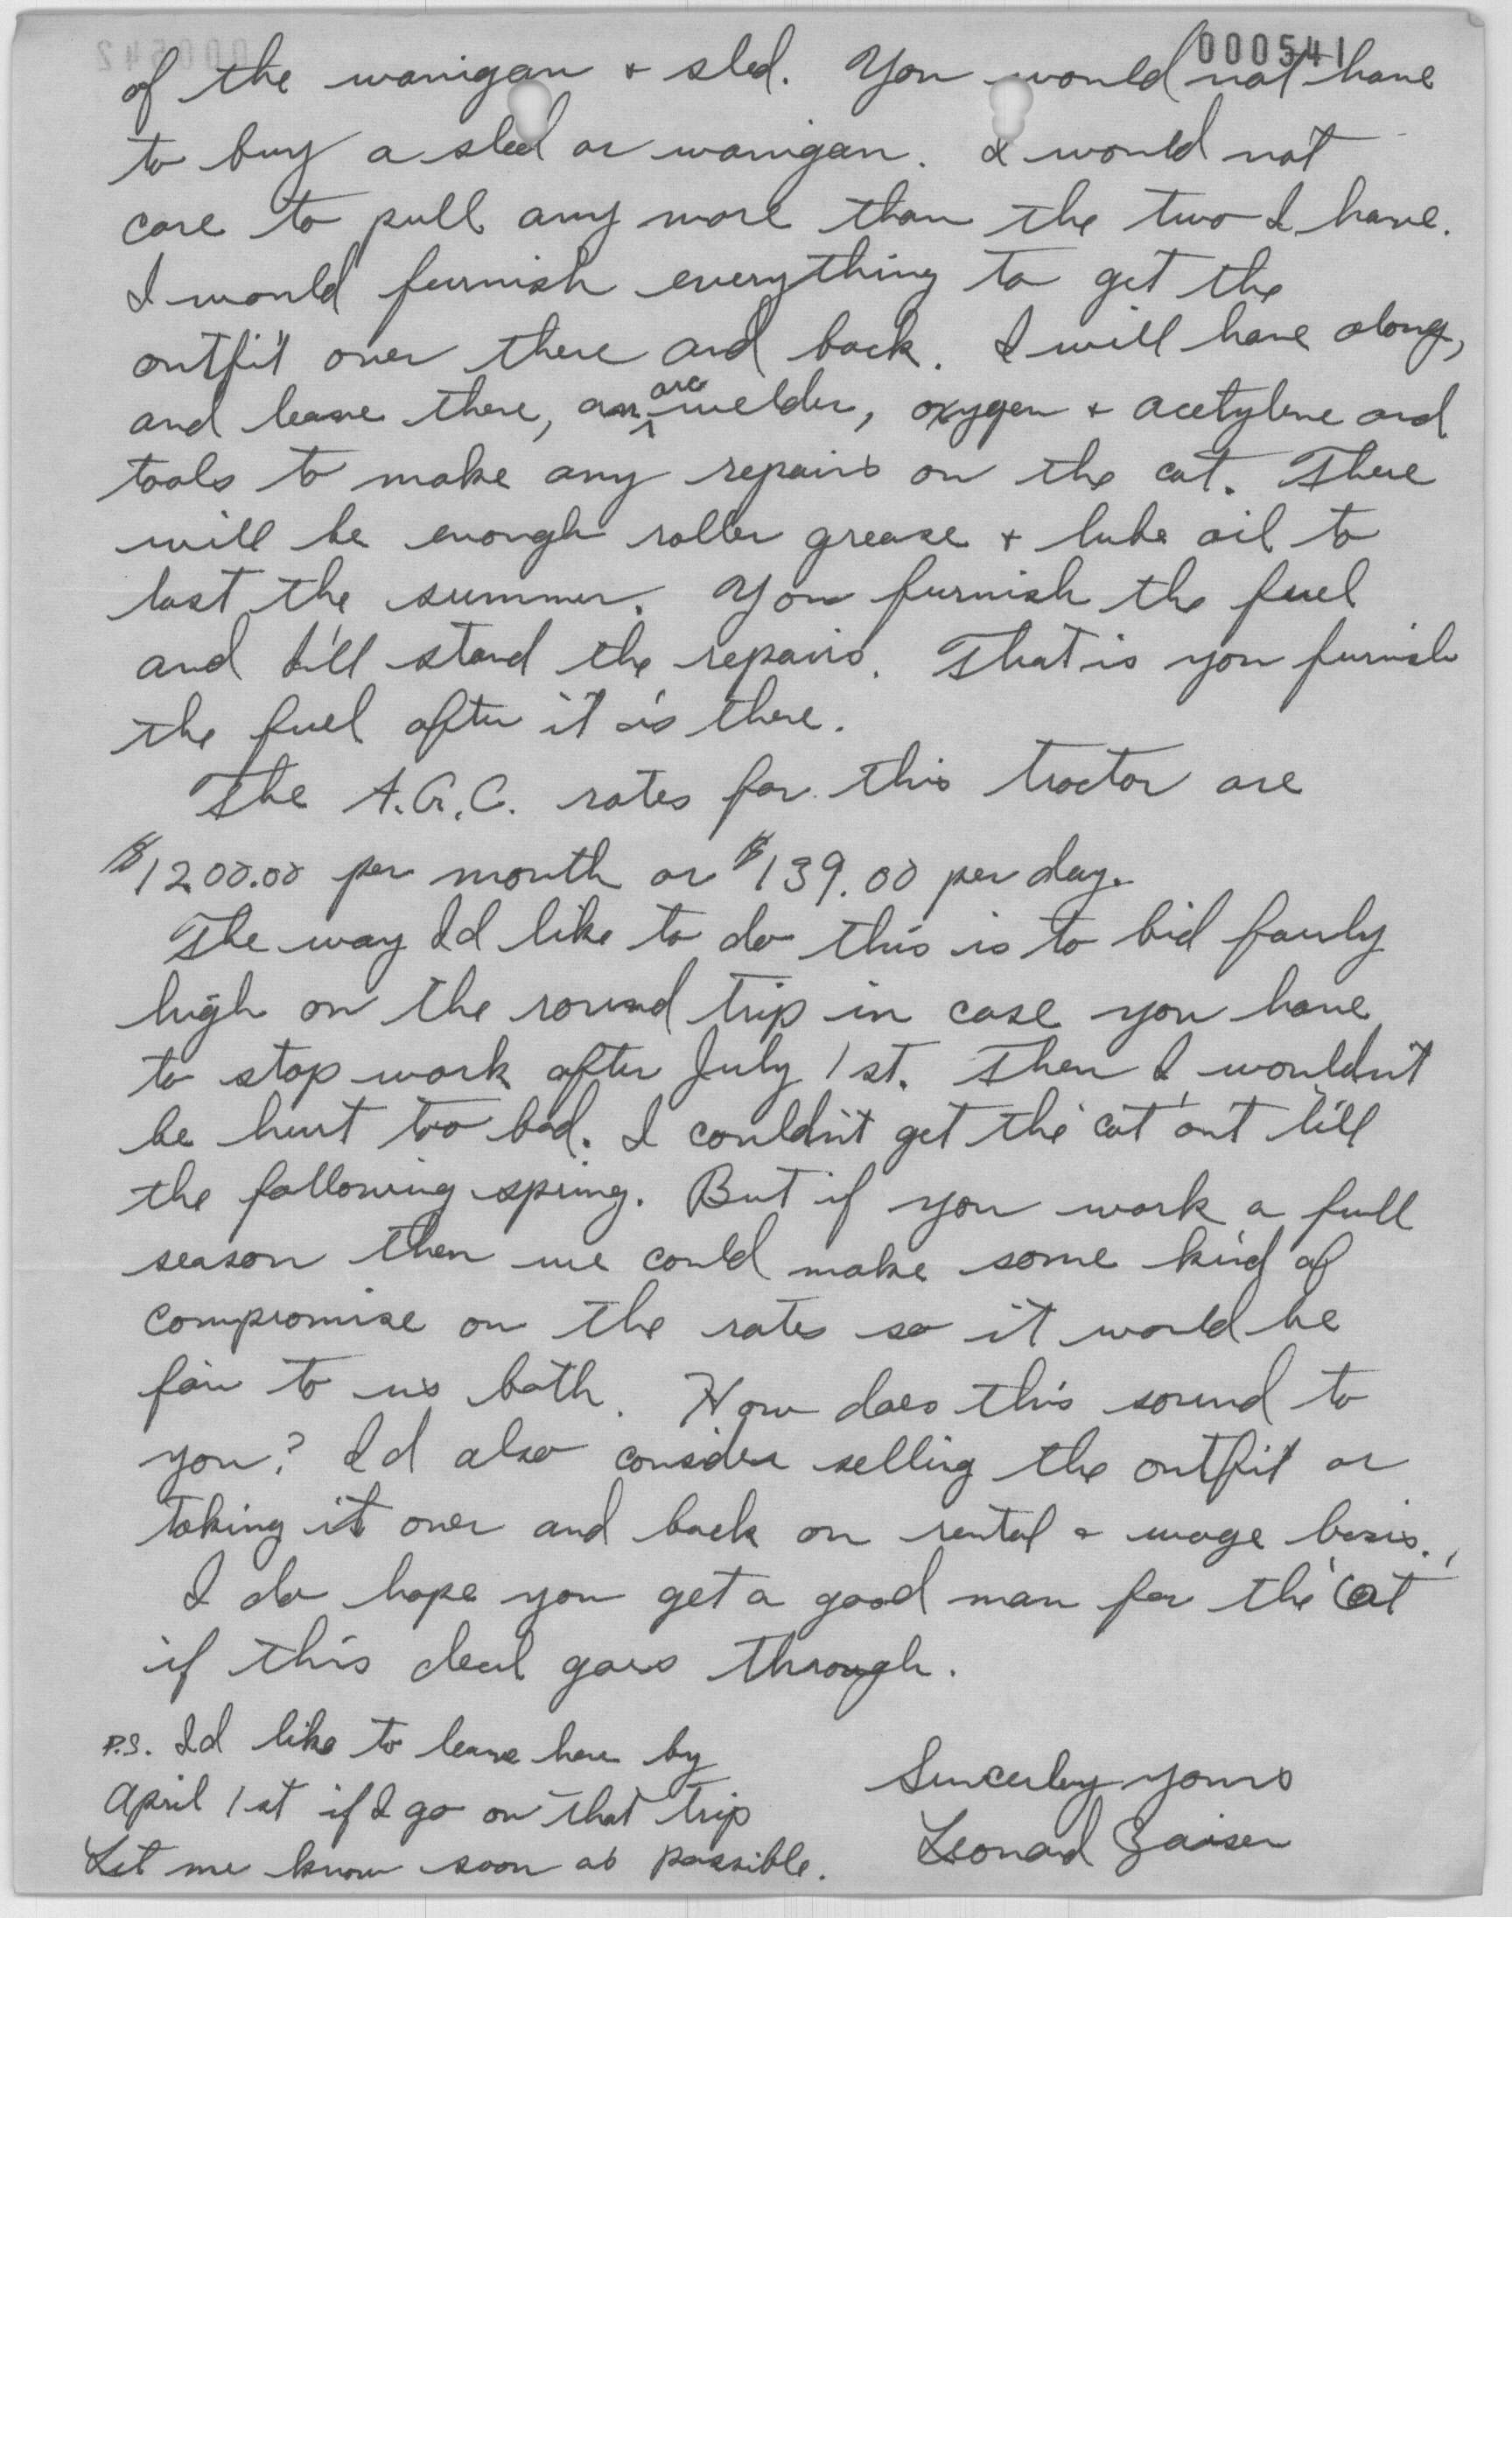 000541
of the wanigan + sled. You would not have
to buy a sled or wanigan. I would not
care to pull any more than the two I have.
I would furnish everything to get the
outfit over there and back. I will have along,
and leave there, an arc welder, oxygen + acetylene and
tools to make any repairs on the cat. There
will be enough roller grease + lube oil to
last the summer. You furnish the fuel
and I'll stand the repairs. That is you furnish
the fuel after it is there.
The A.G.C. rates for this tractor are
$1200.00 per month or $139.00 per day.
The way I'd like to do this is to bid fairly
high on the round trip in case you have
to stop work after July 1st. Then I wouldn't
be hurt too bad. I couldn't get the 'cat' out till
the following spring. But if you work a full
season then we could make some kind of
compromise on the rates so it would be
fair to us both. How does this sound to
you? I'd also consider selling the outfit or
taking it over and back on rental & wage basis.
I do hope you get a good man for the 'Cat'
if this deal goes through.
P.S. I'd like to leave here by
April 1st if I go on that trip
Let me know soon as possible.
Sincerley yours
Leonard Zaiser